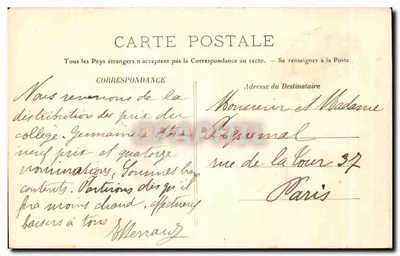 CARTE POSTALE
Tous les Pays étrangers n'acceptent pas la Correspondance au recto. - Se renseigner à la Poste.
CORRESPONDANCE
Nous revenons de la
distribution des prix du
collège. Germaine a
neuf prix et quatorze
nominations. Sommes bien
contents. Partirons dès qu'il
fera moins chaud. affectueux
baisers à tous
Adresse du Destinataire
Monsieur et Madame
Piquemal
rue de la Tour 37
Paris